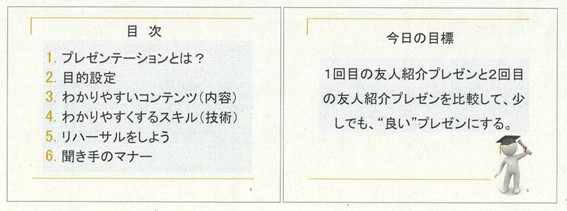 目 次
1. プレゼンテーションとは？
2. 目的設定
3. わかりやすいコンテンツ（内容）
4. わかりやすくするスキル（技術）
5. リハーサルをしよう
6. 聞き手のマナー
今日の目標
１回目の友人紹介プレゼンと２回目
の友人紹介プレゼンを比較して、少
しでも、“良い”プレゼンにする。